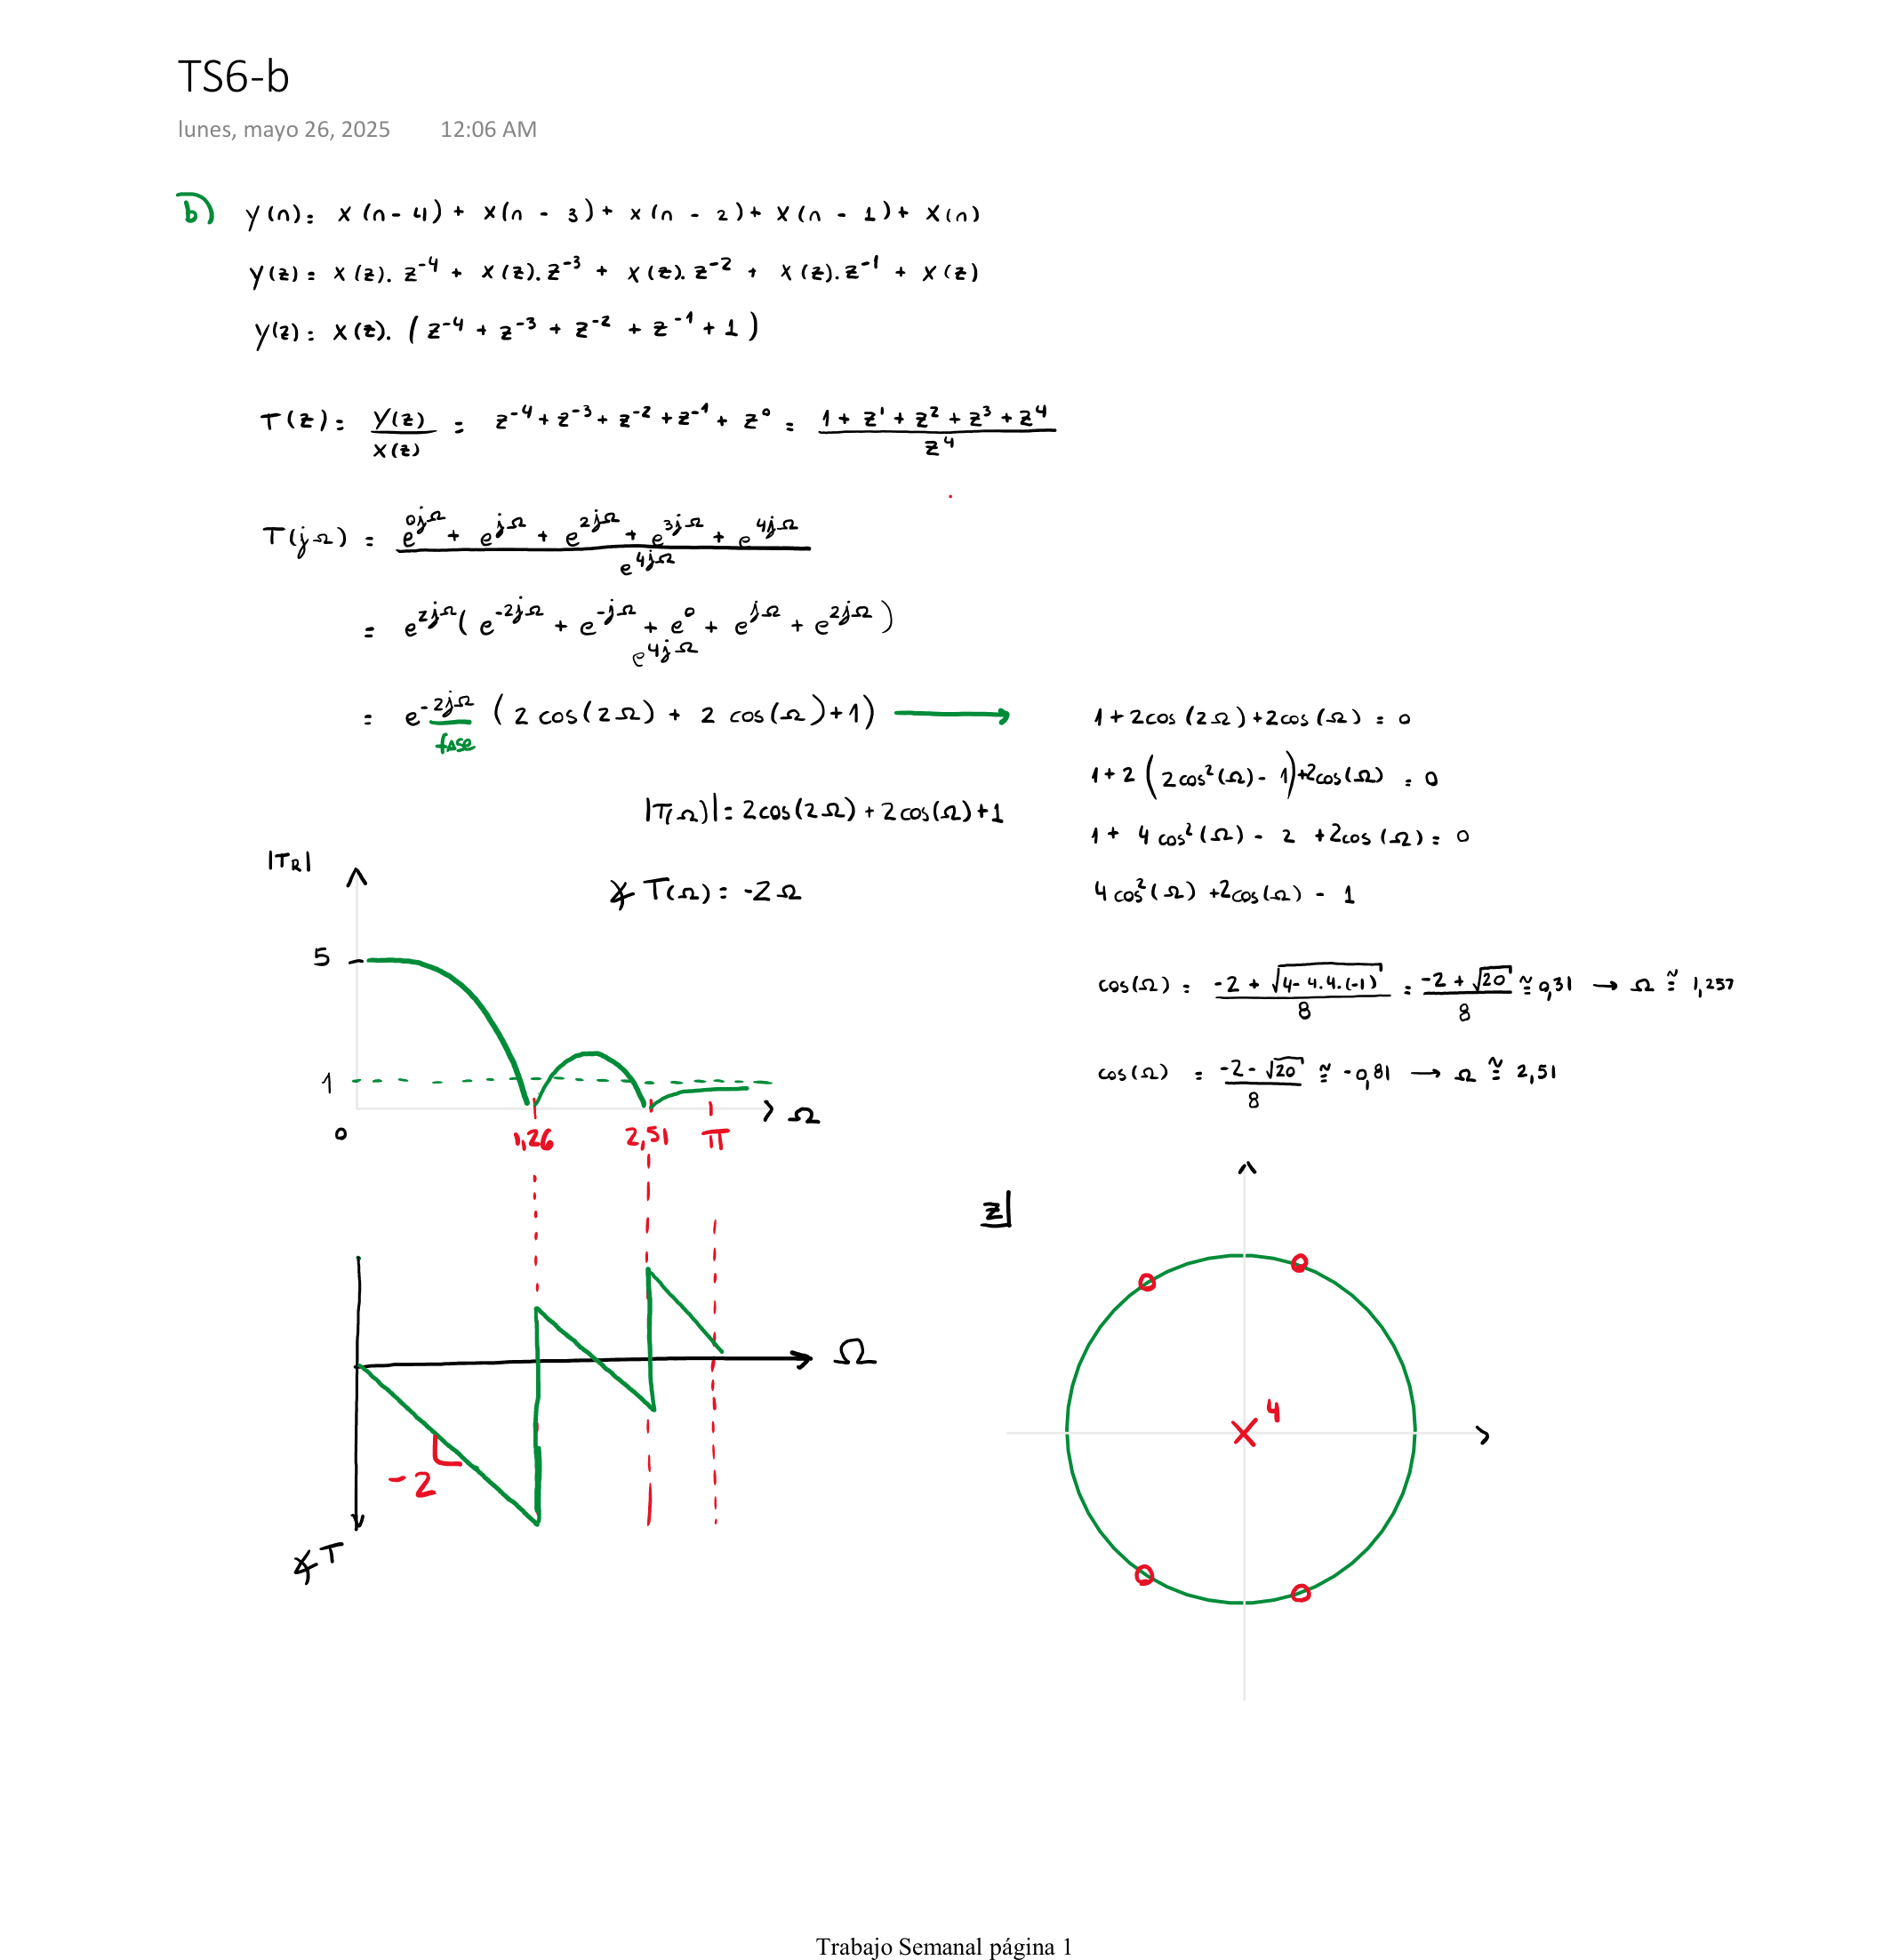 TS6-b
lunes, mayo 26, 2025 12:06 AM
b) y(n): x(n-4) + x(n - 3) + x(n - 2) + x(n - 1) + x(n)
y(z) = x(z). z⁻⁴ + x(z). z⁻³ + x(z). z⁻² + x(z). z⁻¹ + x(z)
y(z): x(z). (z⁻⁴ + z⁻³ + z⁻² + z⁻¹ + 1)
T(z): y(z)/x(z) = z⁻⁴ + z⁻³ + z⁻² + z⁻¹ + z⁰ = (1 + z¹ + z² + z³ + z⁴)/z⁴
T(jΩ) = (e^{0jΩ} + e^{jΩ} + e^{2jΩ} + e^{3jΩ} + e^{4jΩ})/e^{4jΩ}
= e^{2jΩ}(e^{-2jΩ} + e^{-jΩ} + e⁰ + e^{jΩ} + e^{2jΩ})
e^{4jΩ}
= e^{-2jΩ} (2 cos(2Ω) + 2 cos(Ω)+1)
fase
|T(Ω)|= 2cos(2Ω) + 2cos(Ω)+1
∡ T(Ω) = -2Ω
1+2cos(2Ω)+2cos(Ω) = 0
1+2(2cos²(Ω)- 1)+2cos(Ω) = 0
1+ 4cos²(Ω) - 2 +2cos(Ω) = 0
4cos²(Ω) +2cos(Ω) - 1
cos(Ω) = (-2 + √(4-4.4.(-1)))/8 = (-2 + √20)/8 ≅ 0,31 → Ω ≅ 1,257
cos(Ω) = (-2 - √20)/8 ≅ -0,81 → Ω ≅ 2,51
|TR|
5
1
0
1,26
2,51
π
Ω
Ω
-2
∡T
z
4
Trabajo Semanal página 1